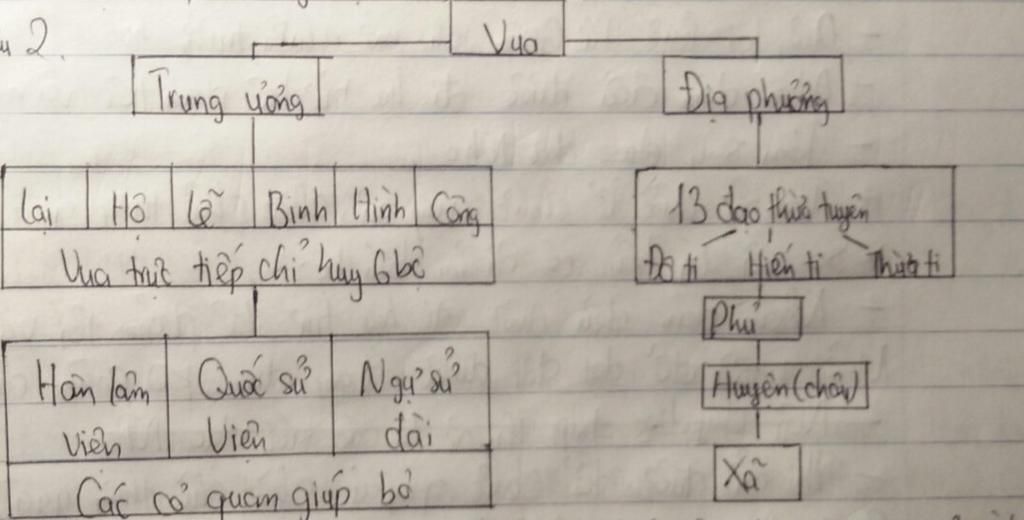 u 2.
Vua
Trung ương
Địa phương
Lại Hộ Lễ Binh Hình Công
Vua trực tiếp chỉ huy 6 bộ
13 đạo thừa tuyên
Đô ti Hiến ti Thừa ti
Phủ
Huyện (châu)
Xã
Hàn lâm viên Quốc sử Viện Ngự sử đài
Các cơ quan giúp bộ